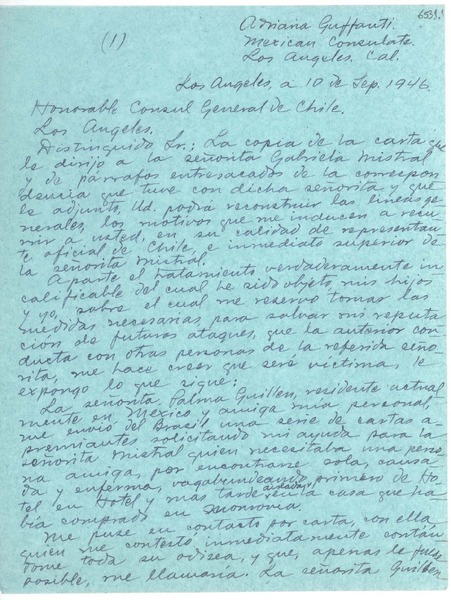 6531.
(1)
Adriana Guffanti.
Mexican Consulate.
Los Angeles. Cal.
Los Angeles, a 10 de Sep. 1946.
Honorable Consul General de Chile.
Los Angeles.
Distinguido Sr.: La copia de la carta que
le dirijo a la señorita Gabriela Mistral
y de párrafos entresacados de la correspon
dencia que tuve con dicha señorita y que
le adjunto, Ud. podrá reconstruir las lineas ge
nerales, los motivos que me inducen a recu
rrir a usted, en su calidad de representan
te oficial de Chile, e inmediato superior de
la señorita Mistral.
Aparte el tratamiento verdaderamente in
calificable del cual he sido objeto, mis hijos
y yo, sobre el cual me reservo tomar las
medidas necesarias, para salvar mi reputa
cion de futuros ataques, que la anterior con
ducta con otras personas de la referida seño-
rita, me hace creer que seré victima, le
expongo lo que sigue:
La señorita Palma Guillen, residente actual
mente en Mexico y amiga mia personal,
me envió del Brasil una serie de cartas a-
premiantes solicitando mi ayuda para la
señorita Mistral quien necesitaba una perso
na amiga, por encontrarse sola, cansa
da y enferma, vagabundeando primero de Ho-
tel en Hotel y mas tarde en la casa que ha-
bia comprado en Monrovia.
Me puse en contacto por carta, con ella,
quien me contestó inmediatamente contán-
dome toda su odisea, y que, apenas le fuese
posible, me llamaria. La señorita Guillen